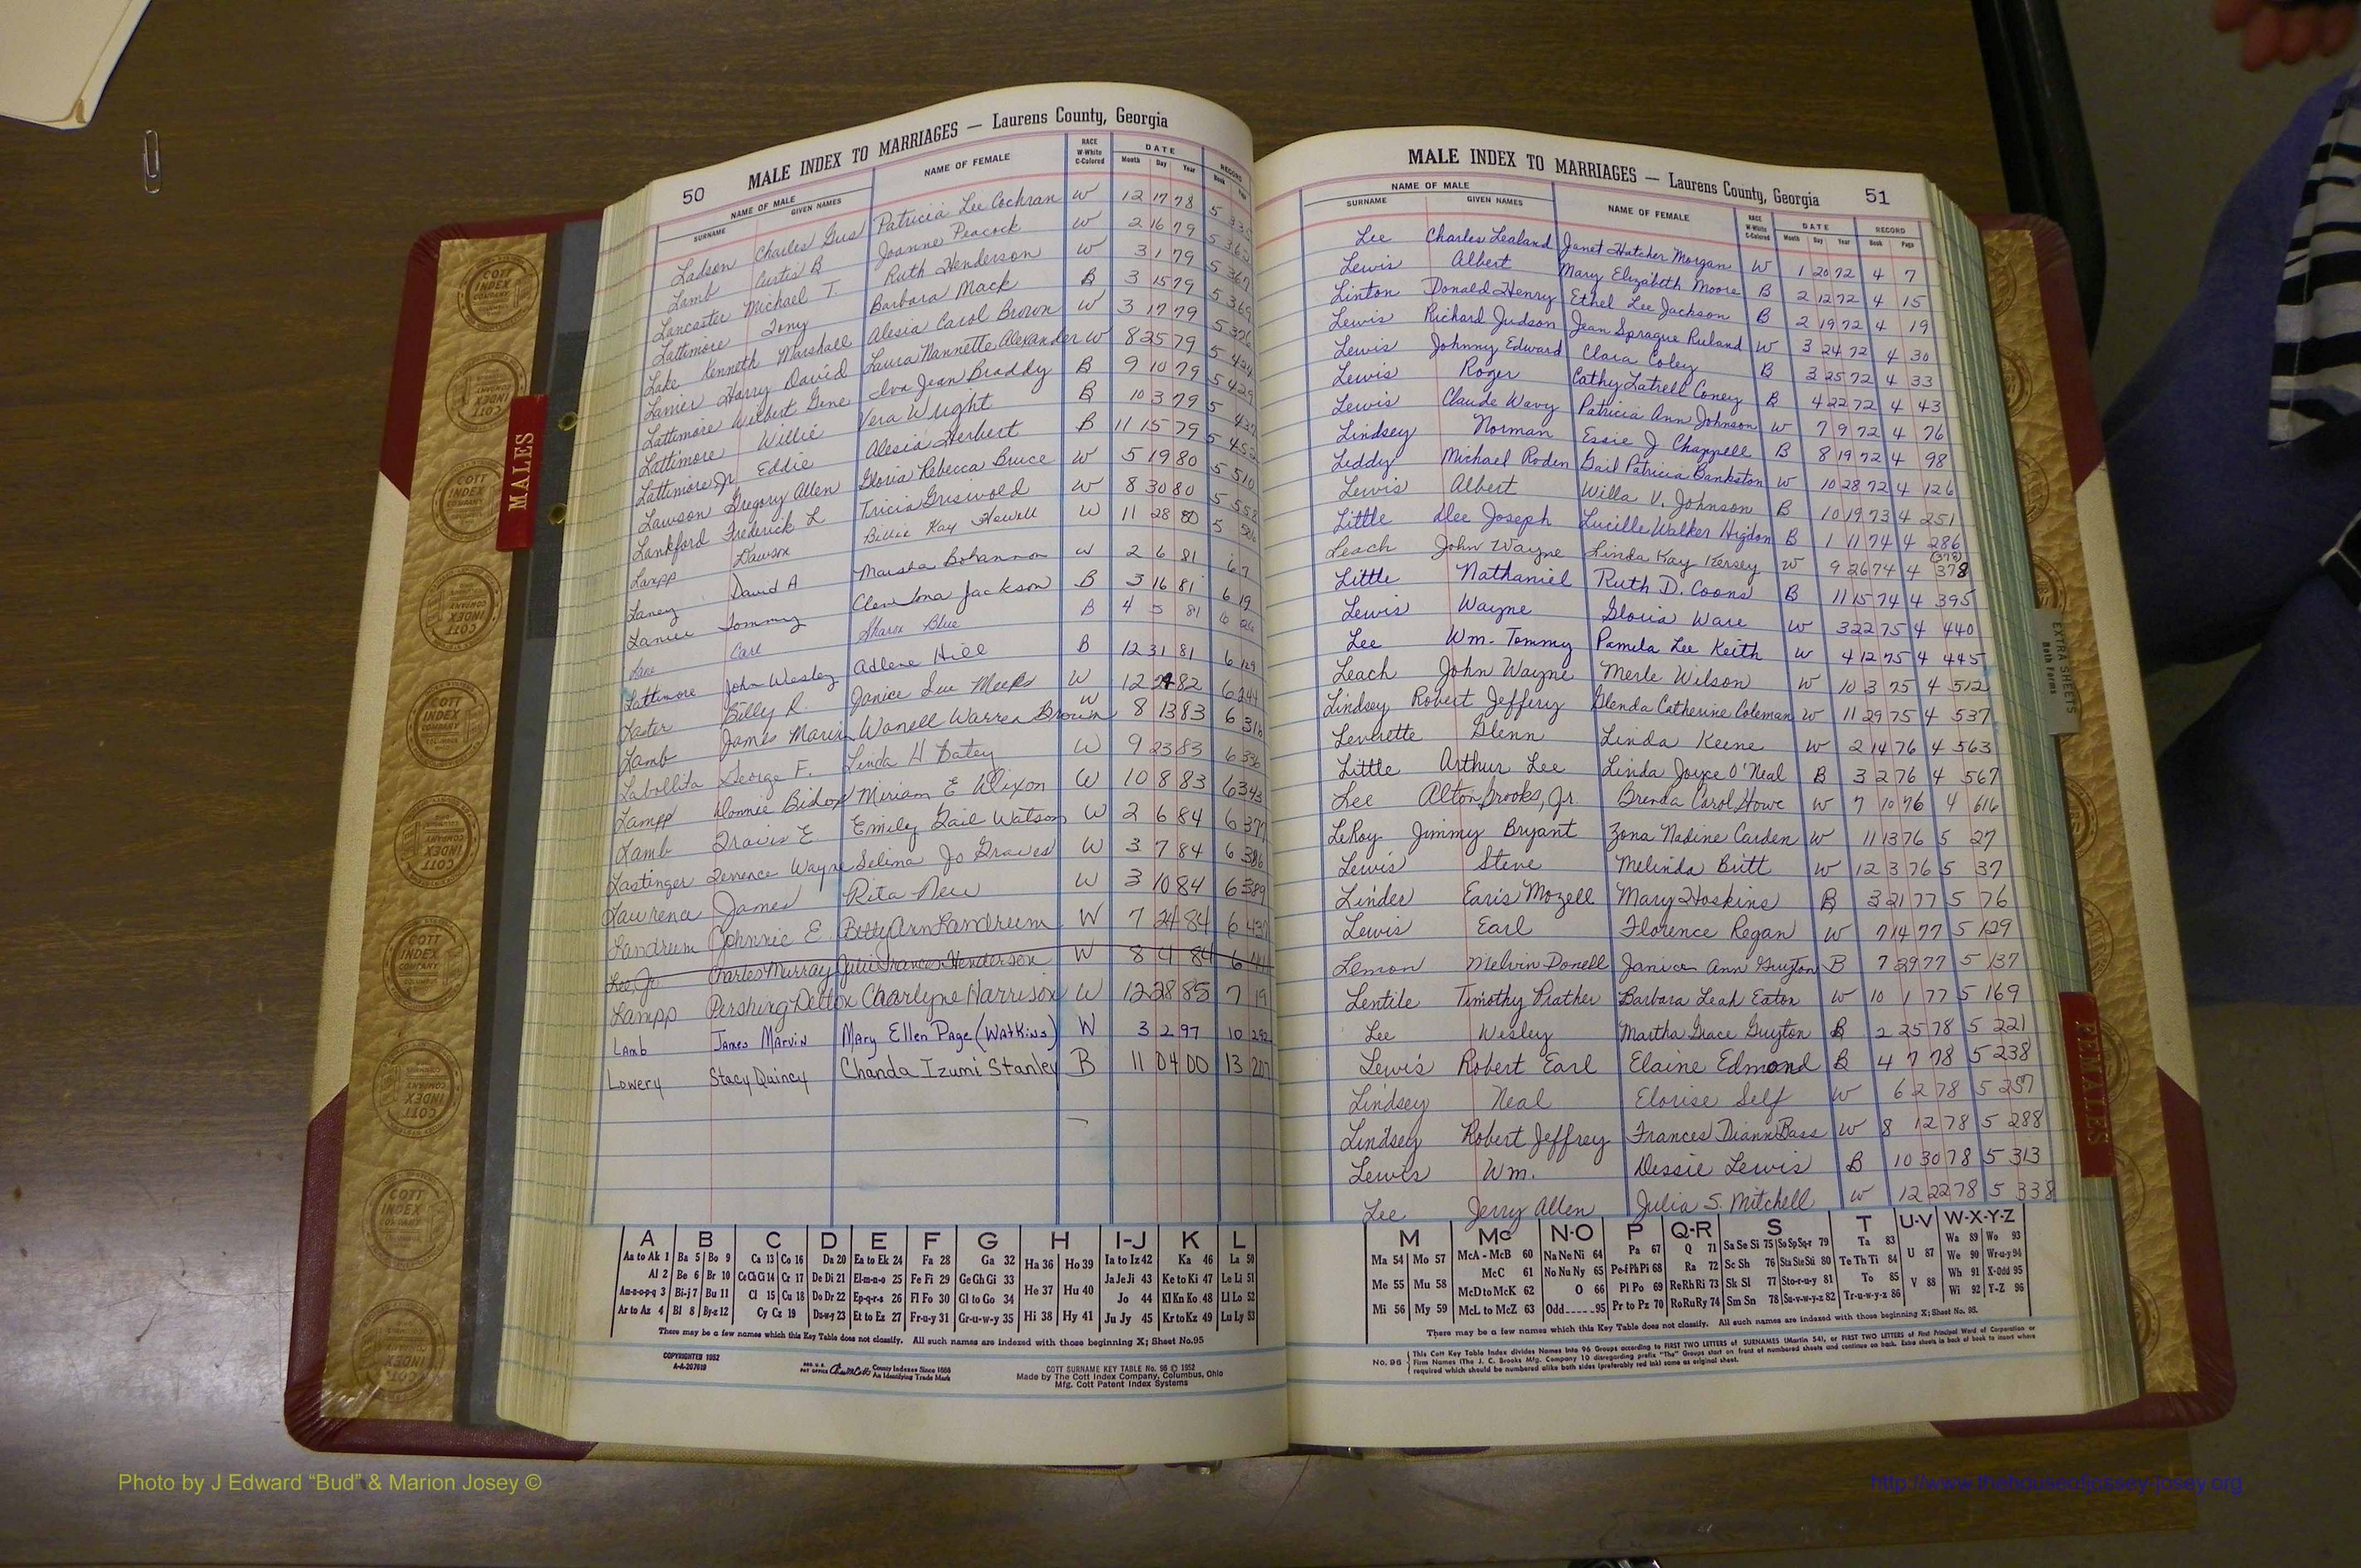 50 MALE INDEX TO MARRIAGES — Laurens County, Georgia
NAME OF MALE NAME OF FEMALE RACE W-White C-Colored DATE RECORD
SURNAME GIVEN NAMES Month Day Year Book
Ladson Charles Gus Patricia Lee Cochran W 12 17 78 5
Lamb Curtis B Joanne Peacock W 2 16 79 5 362
Lancaster Michael T. Ruth Henderson W 3 1 79 5
Lattimore Tony Barbara Mack B 3 15 79 5 369
Lake Kenneth Marshall Alesia Carol Brown W 3 17 79 5
Lanier Harry David Laura Nannette Alexander W 8 25 79 5 424
Lattimore Wilbert Gene Iva Jean Braddy B 9 10 79 5 429
Lattimore Willie Vera Wright B 10 3 79 5
Lattimore Jr Eddie Alesia Herbert B 11 15 79 5 452
Lawson Gregory Allen Gloria Rebecca Bruce W 5 19 80 5 510
Lankford Frederick L Tricia Griswold W 8 30 80 5 552
Lampp Dawson Billie Kay Howell W 11 28 80 5
Laney David A Marsha Bohannon W 2 6 81 6 7
Lanier Tommy Jackson B 3 16 81 6 19
Lane Carl Sharon Blue B 4 5 81 6 26
Lattimore John Wesley Adlene Hill B 12 31 81 6 129
Laster Billy R. Janice Sue Meeks W 12 24 82 6 244
Lamb James Marvin Wanell Warren Brown W 8 13 83 6 316
Labollita George F. Linda H Batey W 9 23 83 6 336
Lampp Donnie Bishop Miriam E Dixon W 10 8 83 6 343
Lamb Travis E. Emily Gail Watson W 2 6 84 6 377
Lastinger Terrence Wayne Selina Jo Graves W 3 7 84 6 386
Lawrence James Rita New W 3 10 84 6 389
Landrum Johnnie E. Betty Ann Landrum W 7 24 84 6
Lee, Jr Charles Murray Julie Frances Henderson W 8 4 84 6
Lampp Pershing Delton Charlyne Harrison W 12 28 85 7 19
Lamb James Marvin Mary Ellen Page (Watkins) W 3 2 97 10 292
Lowery Stacy Quincy Chanda Izumi Stanley B 11 04 00 13 207
A B C D E F G H I-J K L
Aa to Ak 1 Ba 5 Bo 9 Ca 13 Co 16 Da 20 Ea to Ek 24 Fa 28 Ga 32 Ha 36 Ho 39 Ia to Iz 42 Ka 46 La 50
Al 2 Be 6 Br 10 Ce Ch Ci 14 Cr 17 De Di 21 El-m-n-o 25 Fe Fi 29 Ge Gh Gi 33 Ja Je Ji 43 Ke to Ki 47 Le Li 51
Am-n-o-p-q 3 Bi-j 7 Bu 11 Cl 15 Cu 18 Do Dr 22 Ep-q-r-s 26 Fl Fo 30 Gl to Go 34 He 37 Hu 40 Jo 44 Kl Kn Ko 48 Ll Lo 52
Ar to Az 4 Bl 8 By-z 12 Cy Cz 19 Du-w-y 23 Et to Ez 27 Fr-u-y 31 Gr-u-w-y 35 Hi 38 Hy 41 Ju Jy 45 Kr to Kz 49 Lu Ly 53
There may be a few names which this Key Table does not classify. All such names are indexed with those beginning X; Sheet No.95
COPYRIGHTED 1952
A-A-207919
REG. U.S. PAT OFFICE County Indexes Since 1888
An Identifying Trade Mark
COTT SURNAME KEY TABLE No. 96 © 1952
Made by The Cott Index Company, Columbus, Ohio
Mfg. Cott Patent Index Systems
MALE INDEX TO MARRIAGES — Laurens County, Georgia 51
NAME OF MALE NAME OF FEMALE RACE W-White C-Colored DATE RECORD
SURNAME GIVEN NAMES Month Day Year Book Page
Lee Charles Lealand Janet Hatcher Morgan W 1 20 72 4 7
Lewis Albert Mary Elizabeth Moore B 2 12 72 4 15
Linton Donald Henry Ethel Lee Jackson B 2 19 72 4 19
Lewis Richard Judson Jean Sprague Ruland W 3 24 72 4 30
Lewis Johnny Edward Clara Coley B 3 25 72 4 33
Lewis Roger Cathy Latrell Coney B 4 22 72 4 43
Lewis Claude Wavy Patricia Ann Johnson W 7 9 72 4 76
Lindsey Norman Essie J Chappell B 8 19 72 4 98
Leddy Michael Roden Gail Patricia Bankston W 10 28 72 4 126
Lewis Albert Willa V. Johnson B 10 19 73 4 251
Little Alee Joseph Lucille Walker Higdon B 1 11 74 4 286
Leach John Wayne Linda Kay Kersey W 9 26 74 4 (378) 378
Little Nathaniel Ruth D. Coons B 11 15 74 4 395
Lewis Wayne Gloria Ware W 3 22 75 4 440
Lee Wm. Tommy Pamela Lee Keith W 4 12 75 4 445
Leach John Wayne Merle Wilson W 10 3 75 4 512
Lindsey Robert Jeffery Glenda Catherine Coleman W 11 29 75 4 537
Leverette Glenn Linda Keene W 2 14 76 4 563
Little Arthur Lee Linda Joyce O'Neal B 3 2 76 4 567
Lee Alton Brooks, Jr. Brenda Carol Howe W 7 10 76 4 616
LeRoy Jimmy Bryant Zona Nadine Carden W 11 13 76 5 27
Lewis Steve Melinda Britt W 12 3 76 5 37
Linder Earis Mozell Mary Hoskins B 3 21 77 5 76
Lewis Earl Florence Regan W 7 14 77 5 129
Lemon Melvin Donell Janice Ann Guyton B 7 29 77 5 137
Lentile Timothy Prather Barbara Leah Eaton W 10 1 77 5 169
Lee Wesley Martha Grace Guyton B 2 25 78 5 221
Lewis Robert Earl Elaine Edmond B 4 7 78 5 238
Lindsey Neal Elouise Self W 6 2 78 5 257
Lindsey Robert Jeffrey Frances Diann Bass W 8 12 78 5 288
Lewis Wm. Dessie Lewis B 10 30 78 5 313
Lee Jerry Allen Julia S. Mitchell W 12 22 78 5 338
M Mc N-O P Q-R S T U-V W-X-Y-Z
Ma 54 Mo 57 McA - McB 60 Na Ne Ni 64 Pa 67 Q 71 Sa Se Si 75 So Sp Sq-r 79 Ta 83 Wa 89 Wo 93
McC 61 No Nu Ny 65 Pe-f Ph Pi 68 Ra 72 Sc Sh 76 Sta Ste Sti 80 Te Th Ti 84 U 87 We 90 Wr-u-y 94
Me 55 Mu 58 McD to McK 62 O 66 Pl Po 69 Re Rh Ri 73 Sk Sl 77 Sto-r-u-y 81 To 85 Wh 91 X-Odd 95
Mi 56 My 59 McL to McZ 63 Odd-----95 Pr to Pz 70 Ro Ru Ry 74 Sm Sn 78 Su-v-w-y-z 82 Tr-u-w-y-z 86 V 88 Wi 92 Y-Z 96
There may be a few names which this Key Table does not classify. All such names are indexed with those beginning X; Sheet No. 95.
No. 96 This Cott Key Table Index divides Names into 96 Groups according to FIRST TWO LETTERS of SURNAMES (Martin 54), or FIRST TWO LETTERS of First Principal Word of Corporation or
Firm Names (The J. C. Brooks Mfg. Company 10 disregarding prefix "The" Groups start on front of numbered sheets and continue on back. Extra sheets in back of book to insert where
required which should be numbered alike both sides (preferably red ink) same as original sheet.
MALES
FEMALES
EXTRA SHEETS
Both Forms
COTT INDEX COMPANY
Photo by J Edward “Bud” & Marion Josey ©
http://www.thehouseofjossey-josey.org